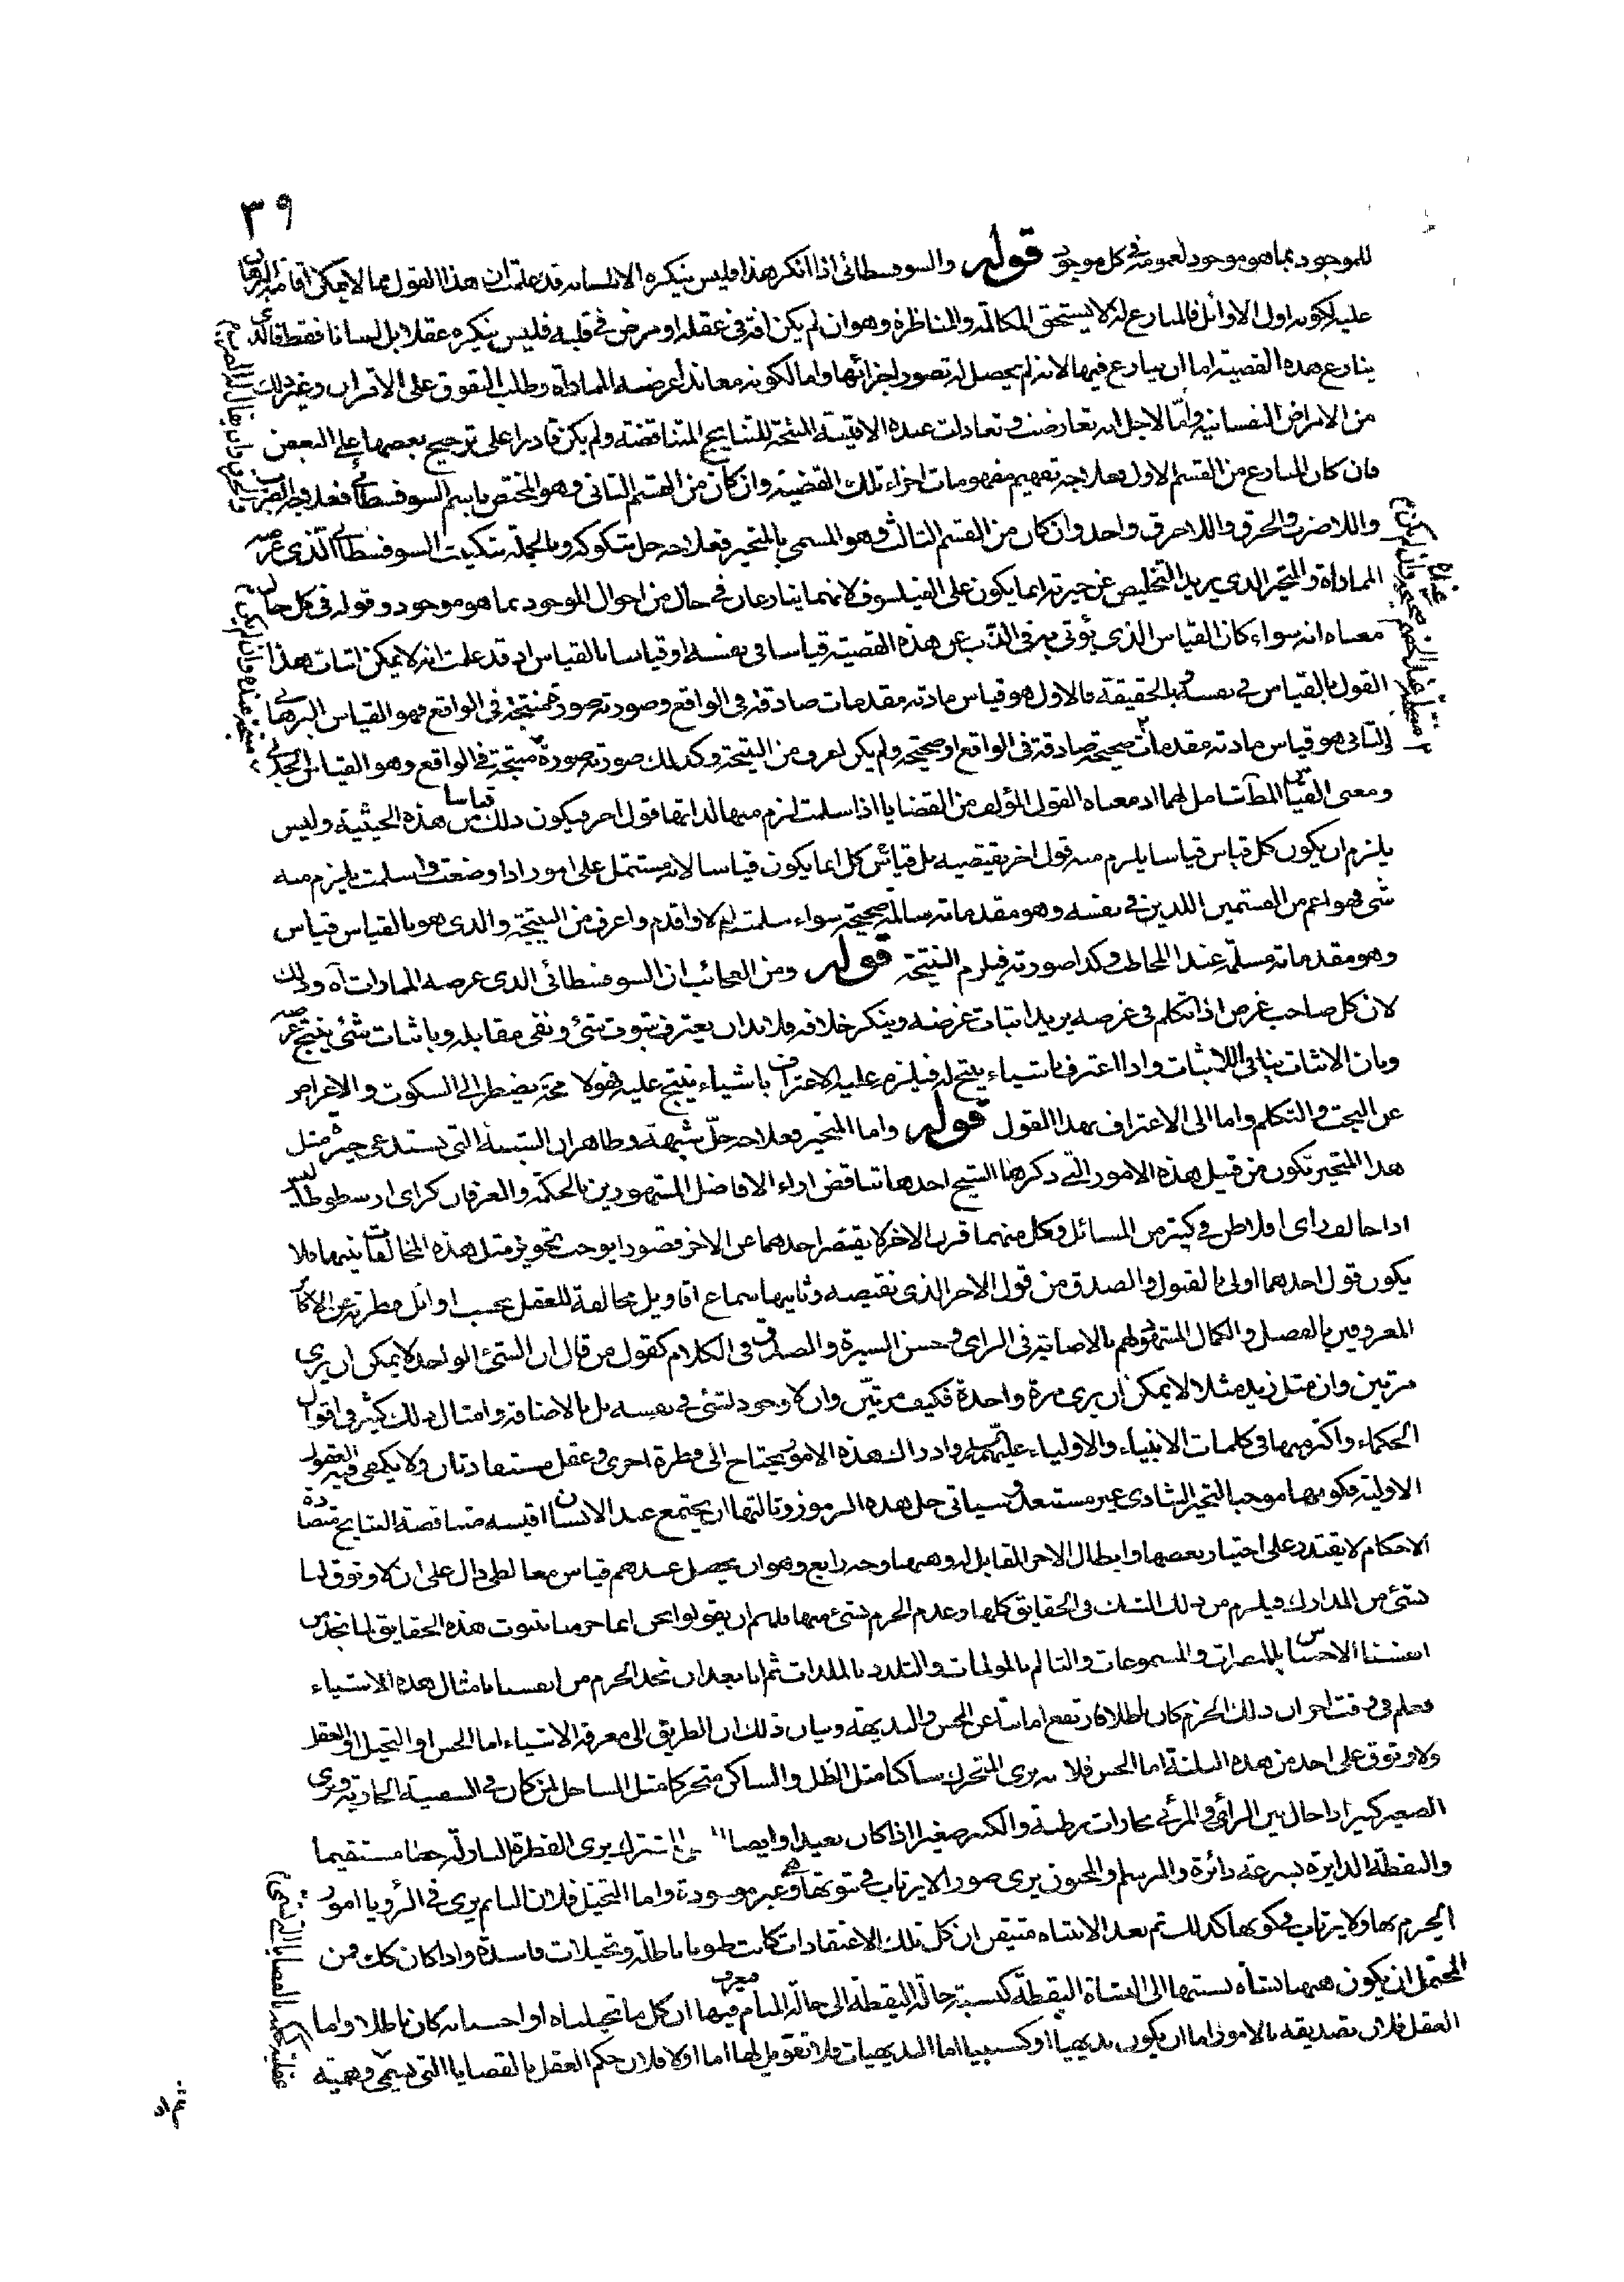 ٣٩
للموجود بما هو موجود لعمومه في كل موجود قوله والسوفسطائي اذا انكر هذا فليس ينكره الا بلسانه قد علمت ان هذا القول مما لا يمكن اقامة البرهان
عليه لكونه اول الاوائل فالمنازع له لا يستحق المكالمة والمناظرة وهو ان لم يكن افة في عقله او مرض في قلبه فليس ينكره عقلا بل لسانا فقط فالذي
ينازع هذه القضية اما ان ينازع فيها لانه لم يحصل له تصور اجزائها واما لكونه معاندا غرضه المماراة وطلب التفوق على الاقران وغير ذلك
من الامراض النفسانية وامّا لاجل انه تعارضت وتعادلت عنده الاقيسة المنتجة للنتايج المتناقضة ولم يكن قادرا على ترجيح بعضها على البعض
فان كان المنازع من القسم الاول فعلاجه تفهيم مفهومات اجزاء تلك القضية وان كان من القسم الثاني وهو المختص باسم السوفسطائي فعلاجه الضرب
واللاضرب والحرق واللاحرق واحد وان كان من القسم الثالث وهو المسمى بالمتحير فعلاجه حل شكوكه وبالجملة تبكيت السوفسطائي الذي غرضه
المماراة والمتحير الذي يريد التخليص عن حيرته انما يكون على الفيلسوف لانهما ينازعان في حال من احوال الموجود بما هو موجود وقوله في كل حال
معناه انه سواء كان القياس الذي يؤتى به في الذب عن هذه القضية قياسا في نفسه او قياسا بالقياس اذ قد علمت انه لا يمكن اثبات هذا
القول بالقياس في نفسه بالحقيقة فالاول هو قياس مادته مقدمات صادقة في الواقع وصورته صورة منتجة في الواقع فهو القياس البرهاني
والثاني هو قياس مادته مقدمات صحيحة صادقة في الواقع او صحيحة ولم يكن اعرف من النتيجة وكذلك صورته صورة منتجة في الواقع وهو القياس الجدلي
ومعنى القياس المطلق شامل لهما اذ معناه القول المؤلف من القضايا اذا سلمت لزم منها لذاتها قول اخر فيكون ذلك قياسا من هذه الحيثية وليس
يلزم ان يكون كل قياس قياسا يلزم منه قول اخر يقتضيه بل قياس كل انما يكون قياسا لانه مشتمل على امور اذا وضعت وسلمت يلزم منه
شي فهو اعم من القسمين اللذين في نفسه وهو مقدماته سالمة صحيحة سواء سلمت ام لا واقدم واعرف من النتيجة والذي هو بالقياس قياس
وهو مقدماته مسلمة عند المخاطب وكذا صورته فيلزم النتيجة قوله ومن العجائب ان السوفسطائي الذي غرضه المماراة اه وذلك
لان كل صاحب غرض اذا تكلم في غرضه يريد اثبات غرضه وينكر خلافه فلا بد ان يعترف بثبوت شئ ونفى مقابله وباثبات شئ ينتج غرضه
وبان الاثبات ينافي اللااثبات واذا اعترف باشياء ينتج له فيلزم عليه الاعتراف باشياء ينتج عليه فهو لا محة يضطر الى السكوت والاعراض
عن البحث والتكلم واما الى الاعتراف بهذا القول قوله واما المتحير فعلاجه حل شبهة وظاهر ان الشبهة التي يستدعى حيرته مثل
هذا المتحير تكون من قبيل هذه الامور التي ذكرها الشيخ احدها تناقض اراء الافاضل المشهورين بالحكمة والعرفان كراى ارسطوطاليس
اذا خالف راى افلاطن في كثير من المسائل وكل منهما قرب الاخر لا يقتصر احدهما عن الاخر قصورا يوجب تجويز مثل هذه المخالفات بينهما فلا
يكون قول احدهما اولى بالقبول والصدق من قول الاخر الذي نقيضه وثانيها سماع اقاويل مخالفة للعقل بحسب اوائل فطرته عن الاكابر
المعروفين بالفضل والكمال المشهود لهم بالاصابة في الراى وحسن السيرة والصدق في الكلام كقول من قال ان الشئ الواحد لا يمكن ان يرى
مرتين وان مثل زيد مثلا لا يمكن ان يرى مرة واحدة فكيف مرتين وان لا وجود لشئ في نفسه بل بالاضافة وامثال ذلك كثير في اقوال
الحكماء واكثر منها في كلمات الانبياء والاولياء عليهم السلم وادراك هذه الامور يحتاج الى فطرة اخرى وعقل مستفاد ثان ولا يكفي فيه العقول
الاولية فكونها موجبا لتحير الشادي غير مستبعد وسياتي حل هذه الرموز وثالثها ان يجتمع عند الانسان اقيسة متناقضة النتايج متضادة
الاحكام لا يقتدر على اختيار بعضها وابطال الاخر المقابل له وههنا وجه رابع وهو ان يحصل عندهم قياس مغالطي دال على ان لا وثوق لنا
بشئ من المدارك فيلزم من ذلك الشك في الحقايق كلها وعدم الجزم بشئ منها فلهم ان يقولوا نحن انما جزمنا بثبوت هذه الحقايق لما نجد من
انفسنا الاحساس بالمبصرات والمسموعات والتالم بالمولمات والتلذذ بالملذات ثم انا بعد ان نجد الجزم من انفسنا بامثال هذه الاشياء
نعلم في وقت اخر ان ذلك الجزم كان باطلا فارتفع اماننا عن الحس والبديهة وبيان ذلك ان الطريق الى معرفة الاشياء اما الحس او التخيل او العقل
ولا وثوق على احد من هذه الثلثة اما الحس فلانه يرى المتحرك ساكنا مثل الظل والساكن متحركا مثل الساحل لمن كان في السفينة الجارية ويرى
الصغير كبيرا اذا حال بين الرائى والمرئى بخارات رطبة والكبير صغيرا اذا كان بعيدا وايضا المشترك يرى القطرة النازلة خطا مستقيما
والنقطة الدايرة بسرعة دائرة والمبرسم والمجنون يرى صورا لا يرتاب في ثبوتها وهي غير موجودة واما التخيل فلان النايم يرى في الرؤيا امورا
يجزم بها ولا يرتاب في كونها كذلك ثم بعد الانتباه متيقن ان كل تلك الاعتقادات كانت ظنونا باطلة وتخيلات فاسدة واذا كان كك فمن
المحتمل ان يكون ههنا نشأة نسبتها الى النشاة اليقظة كنسبة حالة اليقظة الى حالة المنام فيها نعرف ان كل ما تخيلناه او احسسناه كان باطلا واما
العقل فلان تصديقه بالامور اما ان يكون بديهيا او كسبيا اما البديهيات فلا تعويل لها اما اولا فلان حكم العقل بالقضايا التي تسمى وهمية